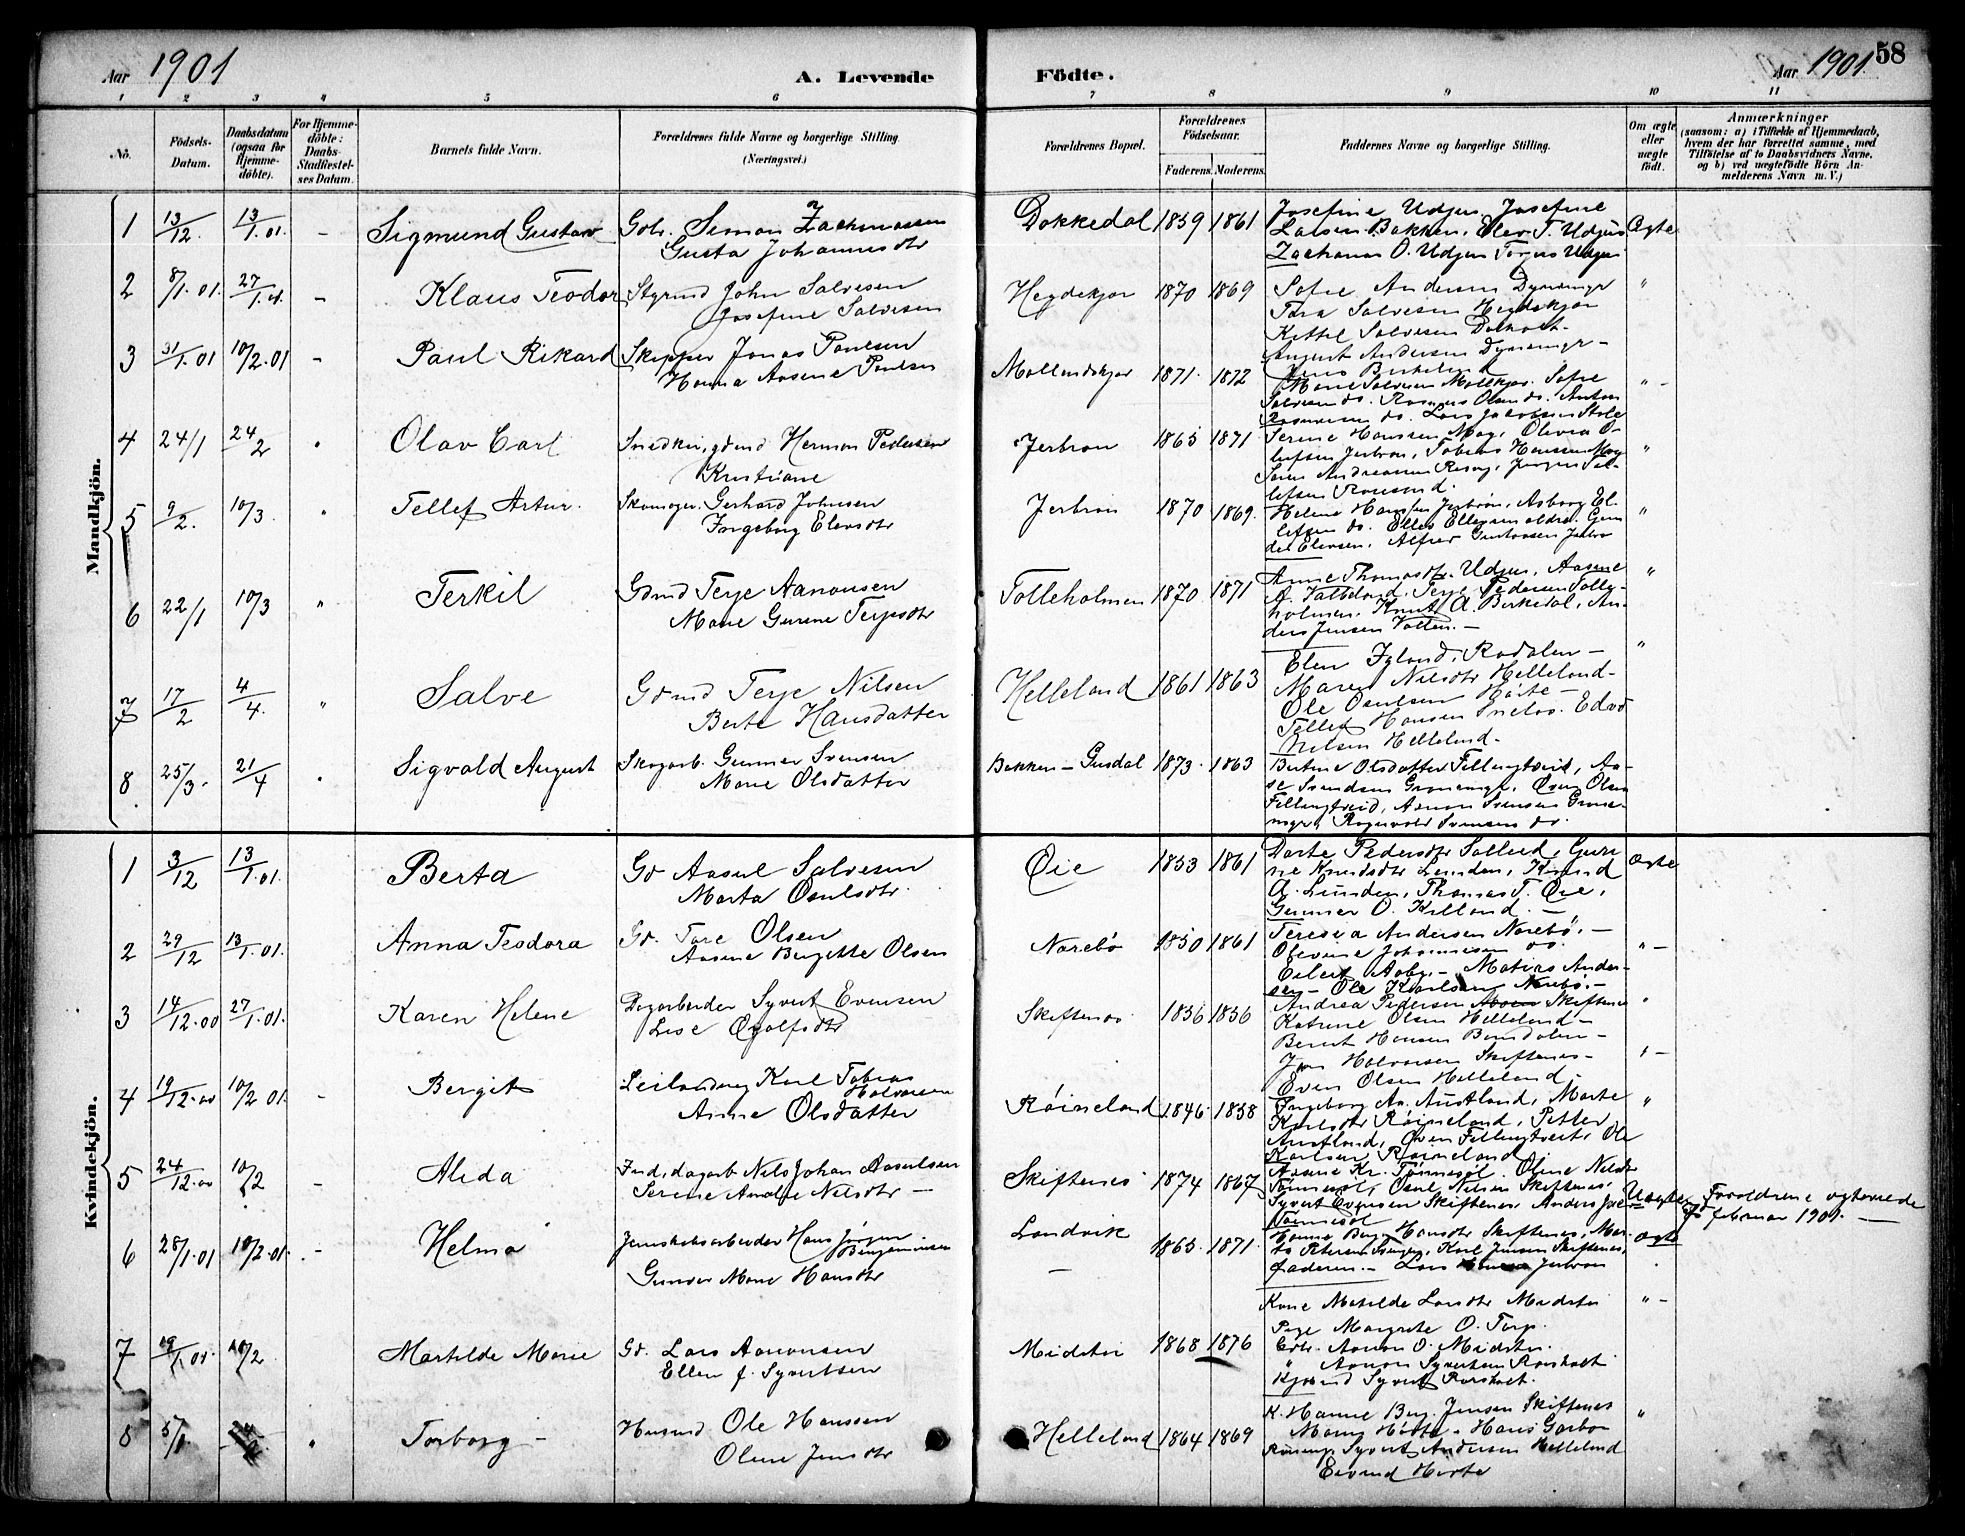 Aar 1901
A. Levende Födte.
Aar 1901
58
1 2 3 4 5 6 7 8 9 10 11
No.
Födsels-
Datum.
Daabsdatum
(ogsaa for
Hjemme-
döbte).
For Hjemme-
döbte:
Daabs-
Stadfæstel-
ses Datum.
Barnets fulde Navn.
Forældrenes fulde Navne og borgerlige Stilling
(Næringsvei.)
Forældrenes Bopæl.
Forældrenes
Födselsaar.
Faderens. Moderens.
Faddernes Navne og borgerlige Stilling.
Om ægte
eller
uægte
födt.
Anmærkninger
(saasom: a) i Tilfælde af Hjemmedaab,
hvem der har forrettet samme, med
Tilföielse af to Daabsvidners Navne,
og b) ved uægtefödte Börn An-
melderens Navn m. V.)
Mandkjön.
1 13/12 13/1.01 - Sigmund Gustav
Simon Zachariassen
Gusta Johannesdtr
Dokkedal 1859 1861
Josefine Udjus, Josefine
Larsen Bakken, Elev T. Udjus
Zacharias O. Udjus Torjus Udjus
Ægte
2 8/1.01. 27/1.01. - Klaus Teodor
Styrmd John Salvesen
Josefine Salvesen
Heydekjær 1870 1869
Sofie Andersen Dynemyr
Tora Salvesen Heydekjær
Kittel Salvesen
August Andersen Dynemyr -
"
3 31/1.01 10/2.01 - Paul Rikard
Skipper Jonas Poulsen
Hanna Aasene Poulsen
Mollandskjær 1871. 1872
Marie Salvesen Mollkjær. Sofie
Salvesen do. Rasmus Olsen do. Anton
Rasmussen do. Lars Jacobsen
" -
4 24/1 24/2 " Olav Carl
Snedker, gdmd Herman Pedersen
Kristiane
Jerbron 1865 1871
Serine Hanssen Moy, Olivia O-
lufsen Jerbron, Tobias Hanssen Moy
Søren Andreassen Resøy, Jørgen Tel-
lefsen
"
5 9/2. 10/3. " Tellef Artur.
Skomager. Gerhard Johnsen
Ingeborg Elevsdtr
Jerbron 1870 1869.
Helene Hanssen Jerbrøn, Asborg El-
lefsen do. Ellef Ellefsen Gun-
der Elevsen, Alfred Gustavsen Jerbro
"
6 22/1 10/3 " Terkil
Gdmd Terje Aanonsen
Marie Gurine Terjesdtr
Tolleholmen 1870 1871
Anne Thomasdtr. Udjus, Aasne
A. Terje Pedersen Tolle-
holmen. Knut A. Birkedal, An-
ders Jensen Vatten. -
"
7 17/2 4/4. " Salve
Gdmd Terje Nilsen
Berte Hansdatter
Helleland 1861 1863
Elen Igland, Rodalen -
Maren Nilsdtr Helleland -
Ole Osulsen Hørte -
Tellef Hansen Edvd
Nilsen Helleland -
"
8 25/3. 21/4 " Sigvald August
Skogarb. Gunner Svensen
Marie Olsdatter
Bakken - Gusdal 1873. 1863
Bertine Olsdatter Fillingtveid, Aa-
se Svendsen Gronemyr, Øven Olsen
Fillingtveid, Aanon Svensen Grone-
myr, Rognvald Svensen do.
Kvindekjön.
1 3/12 13/1.01. Berta
Gd Aasul Salvesen
Marta Osulsdtr.
Øie 1853 1861
Dorte Pedersdtr Gure-
ne Knudsdtr Lunden, Knud
O. Lunden, Thomas T. Øie,
Gunner O. Killand. -
Ægte
2 29/12 13/1.01. Anna Teodora
Gd. Tore Olsen
Aasene Bergitte Olsen
Narebø 1850 1861
Teresia Andersen Narebø. -
Olevine Johannesen do.
Eilert Aaby. - Matias Ander-
sen - Ole Karlsen, Narebø. -
" -
3 14/12.00 27/1.01. Karen Helene
Dagarbeider Syvert Evensen
Lise
Skiftenes. 1856 1856
Andrea Pedersen Skiftenes
Katrine Olsen Helleland -
Bernt Hansen
Jens Halvorsen Skiftenes -
Even Olsen Helleland -
"
" -
4 19/12.00 10/2 01. - Bergit
Leilænding Karl Tobias
Halvorsen
Anne Olsdatter
Røineland 1846. 1858
Ingeborg Aa. Austland, Marte
Karlsdtr Røineland, Petter
Austland, Øven Fillingtveit, Ole
Karlsen Røineland
"
5 24/12.00 10/2 - Alida
Ind. dagarb Nils Johan Aasulsen
Serine Amalie Nilsdtr -
Skiftenes 1874 1867
Aasene Kr. Tønnesøl. Oline Nilsdtr
Tønnesøl, Osul Nilsen Skiftenes,
Syvert Evensen Skiftenes, Anders
Tønnesøl
Uægte
Forældrene ægteviede
7de februar 1901. -
6 28/1.01 10/2.01. - Helma
Jernskibsarbeider Hans Jørgen
Benjaminsen
Gunvor Marie Hansdtr
Landvik
-
1865. 1871.
Hanne Berg. Hansdtr Skiftenes, Mar-
Petersen Karl Jensen Skiftenes,
faderen. - Lars Jerbron
Ægte
7 19/1.01. 10/2. Matilde Marie
Gd. Lars Aanonsen
Ellen J. Syvertsen
Midstøi 1868 1876
Kone Matilde Larsdtr Midstøi
Pige Margrete O. Torp.
Aanon O. Midstøi.
" Aanon Syvertsen Rorsholt
Syvert Rorsholt.
" -
8 5/1 " Torborg -
Husmd Ole Hanssen
Oline Jensdtr
Helleland 1864 1869
K. Hanne Berg. Jensen Skiftenes
Hørte. Hans
Syvert Andersen Helleland
Eivind Hørte
"